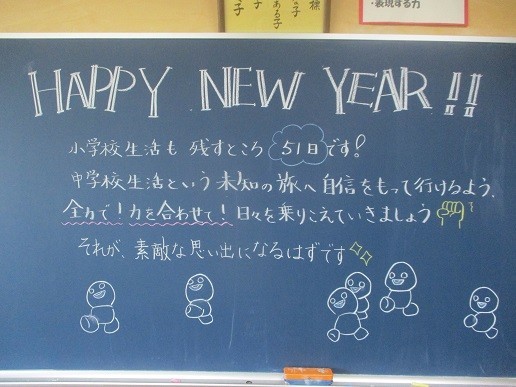 ・表現する力
HAPPY NEW YEAR!!
小学校生活も 残すところ 51日です!
中学校生活という未知の旅へ自信をもって行けるよう、
全力で！力を合わせて！日々を乗りこえていきましょう
それが、素敵な思い出になるはずです